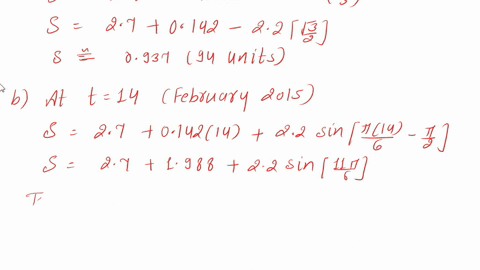 S = 2.7 + 0.142 - 2.2 [√3/2]
S ≅ 0.937 (94 units)
b) At t=14 (February 2015)
S = 2.7 + 0.142(14) + 2.2 sin [π(14)/6 - π/2]
S = 2.7 + 1.988 + 2.2 sin [11π/6]